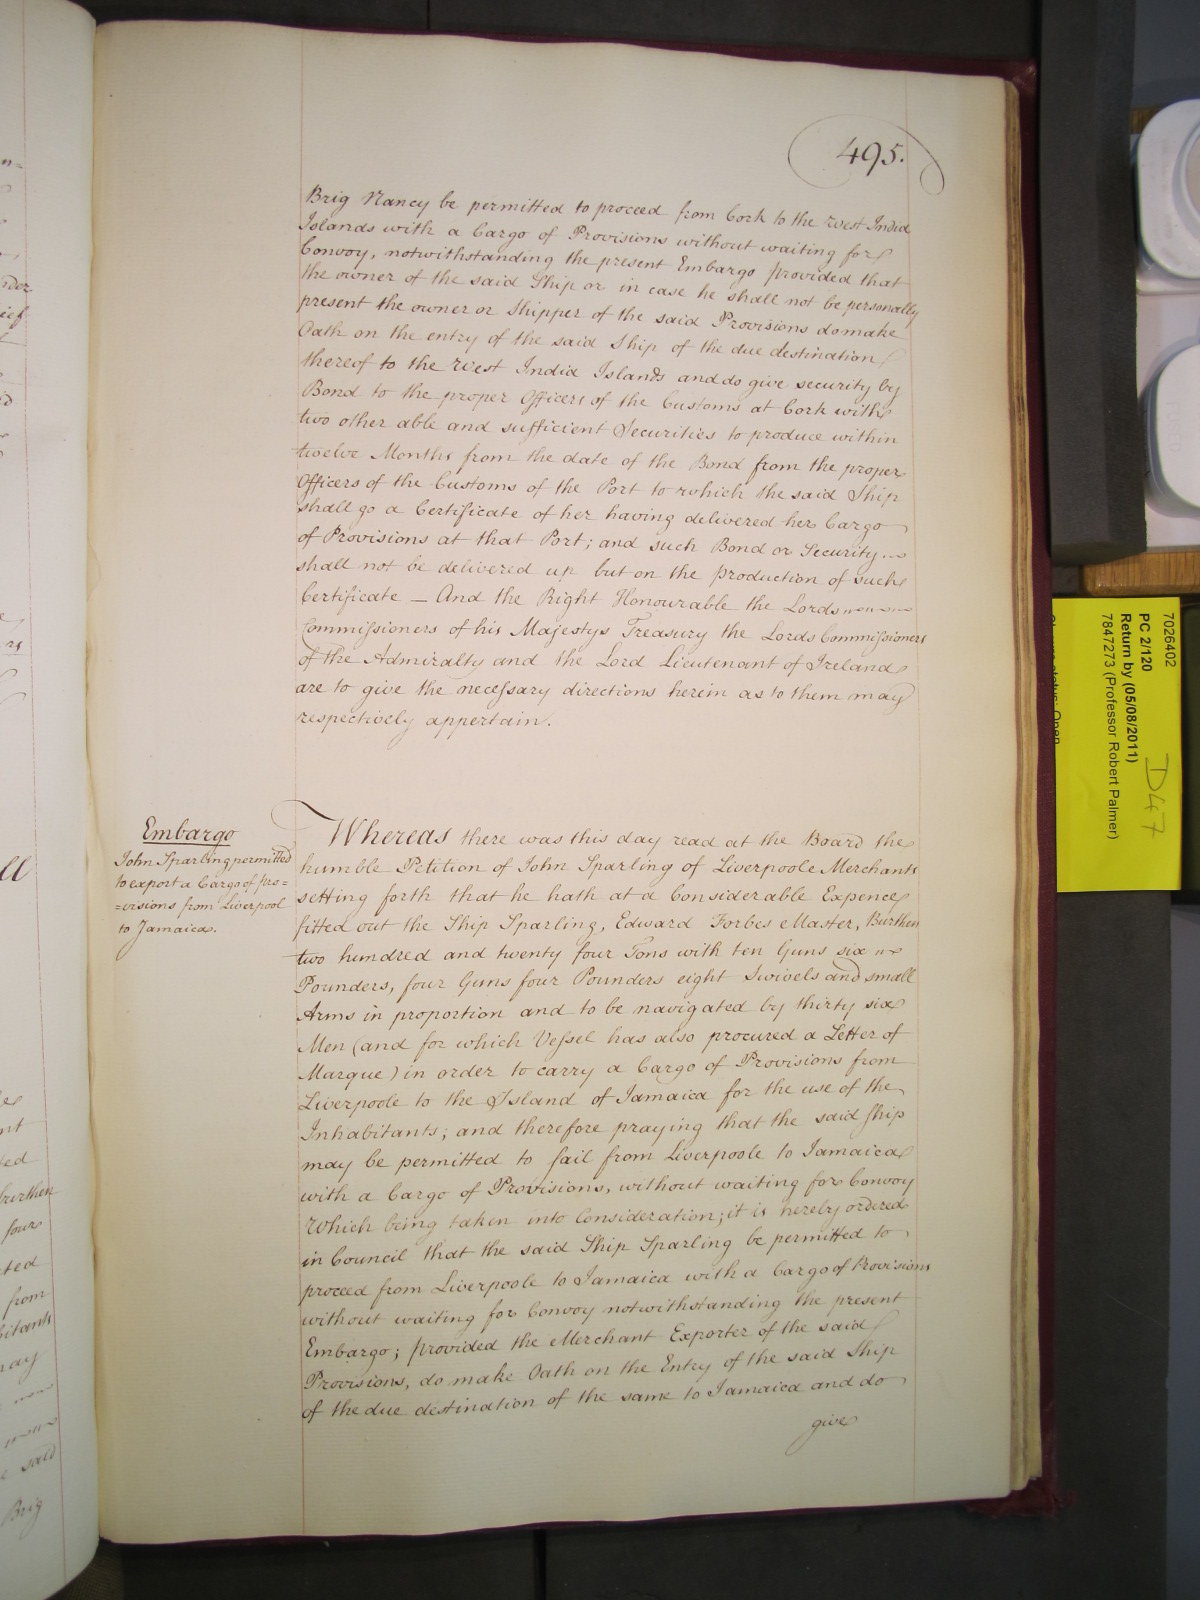 495.
Brig Nancy be permitted to proceed from Cork to the West India
Islands with a Cargo of Provisions without waiting for
Convoy, notwithstanding the present Embargo provided that
the owner of the said Ship or in case he shall not be personally
present the owner or Shipper of the said Provisions do make
Oath on the entry of the said Ship of the due destination
thereof to the West India Islands and do give security by
Bond to the proper Officers of the Customs at Cork with
two other able and sufficient Securities to produce within
twelve Months from the date of the Bond from the proper
Officers of the Customs of the Port to which the said Ship
shall go a Certificate of her having delivered her Cargo
of Provisions at that Port; and such Bond or Security
shall not be delivered up but on the production of such
Certificate — And the Right Honourable the Lords
Commissioners of his Majestys Treasury the Lords Commissioners
of the Admiralty and the Lord Lieutenant of Ireland
are to give the necessary directions herein as to them may
respectively appertain.
Embargo
John Sparling permitted
to export a Cargo of Pro=
=visions from Liverpool
to Jamaica.
Whereas there was this day read at the Board the
humble Petition of John Sparling of Liverpoole Merchant
setting forth that he hath at a Considerable Expence
fitted out the Ship Sparling, Edward Forbes Master, Burthen
two hundred and twenty four Tons with ten Guns six
Pounders, four Guns four Pounders eight Swivels and small
Arms in proportion and to be navigated by thirty six
Men (and for which Vessel has also procured a Letter of
Marque) in order to carry a Cargo of Provisions from
Liverpoole to the Island of Jamaica for the use of the
Inhabitants; and therefore praying that the said Ship
may be permitted to sail from Liverpoole to Jamaica
with a Cargo of Provisions, without waiting for Convoy
Which being taken into Consideration; it is hereby ordered
in Council that the said Ship Sparling be permitted to
proceed from Liverpoole to Jamaica with a Cargo of Provisions
without waiting for Convoy notwithstanding the present
Embargo; provided the Merchant Exporter of the said
Provisions, do make Oath on the Entry of the said Ship
of the due destination of the same to Jamaica and do
give
7026402
PC 2/120
Return by (05/08/2011)
7847273 (Professor Robert Palmer)
D47
status: Open